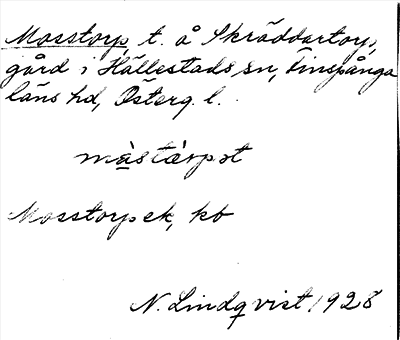 Mosstorp, t. å Skräddartorp,
gård i Hällestads sn, Finspånga
läns hd, Österg. l.
màstárpət
Mosstorp ek, kb
N. Lindqvist 1928